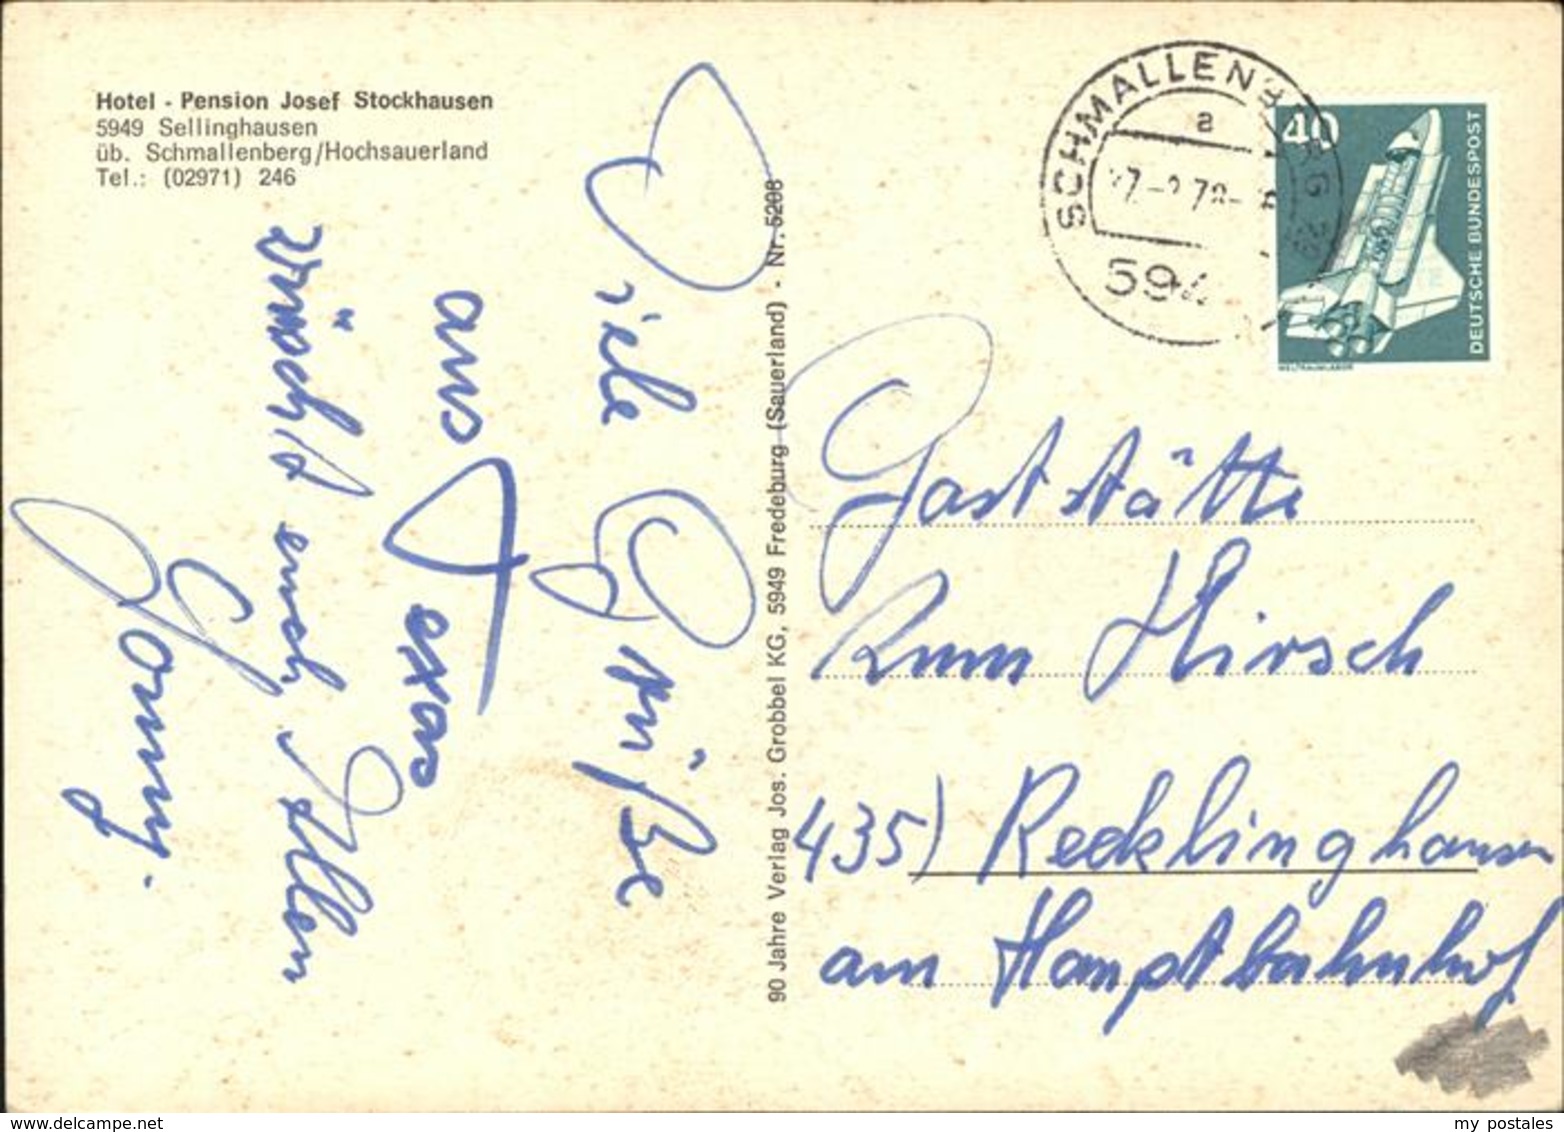 Hotel - Pension Josef Stockhausen
5949 Sellinghausen
üb. Schmallenberg/Hochsauerland
Tel.: (02971) 246
Viele Grüße
aus Texas
wünscht euch Allen
Conny.
90 Jahre Verlag Jos. Grobbel KG, 5949 Fredeburg (Sauerland) - Nr. 5208
SCHMALLENBERG
a
594
40
DEUTSCHE BUNDESPOST
WELTRAUMLABOR
Gaststätte
Zum Hirsch
435) Recklinghausen
am Hauptbahnhof
delcampe.net
my postales